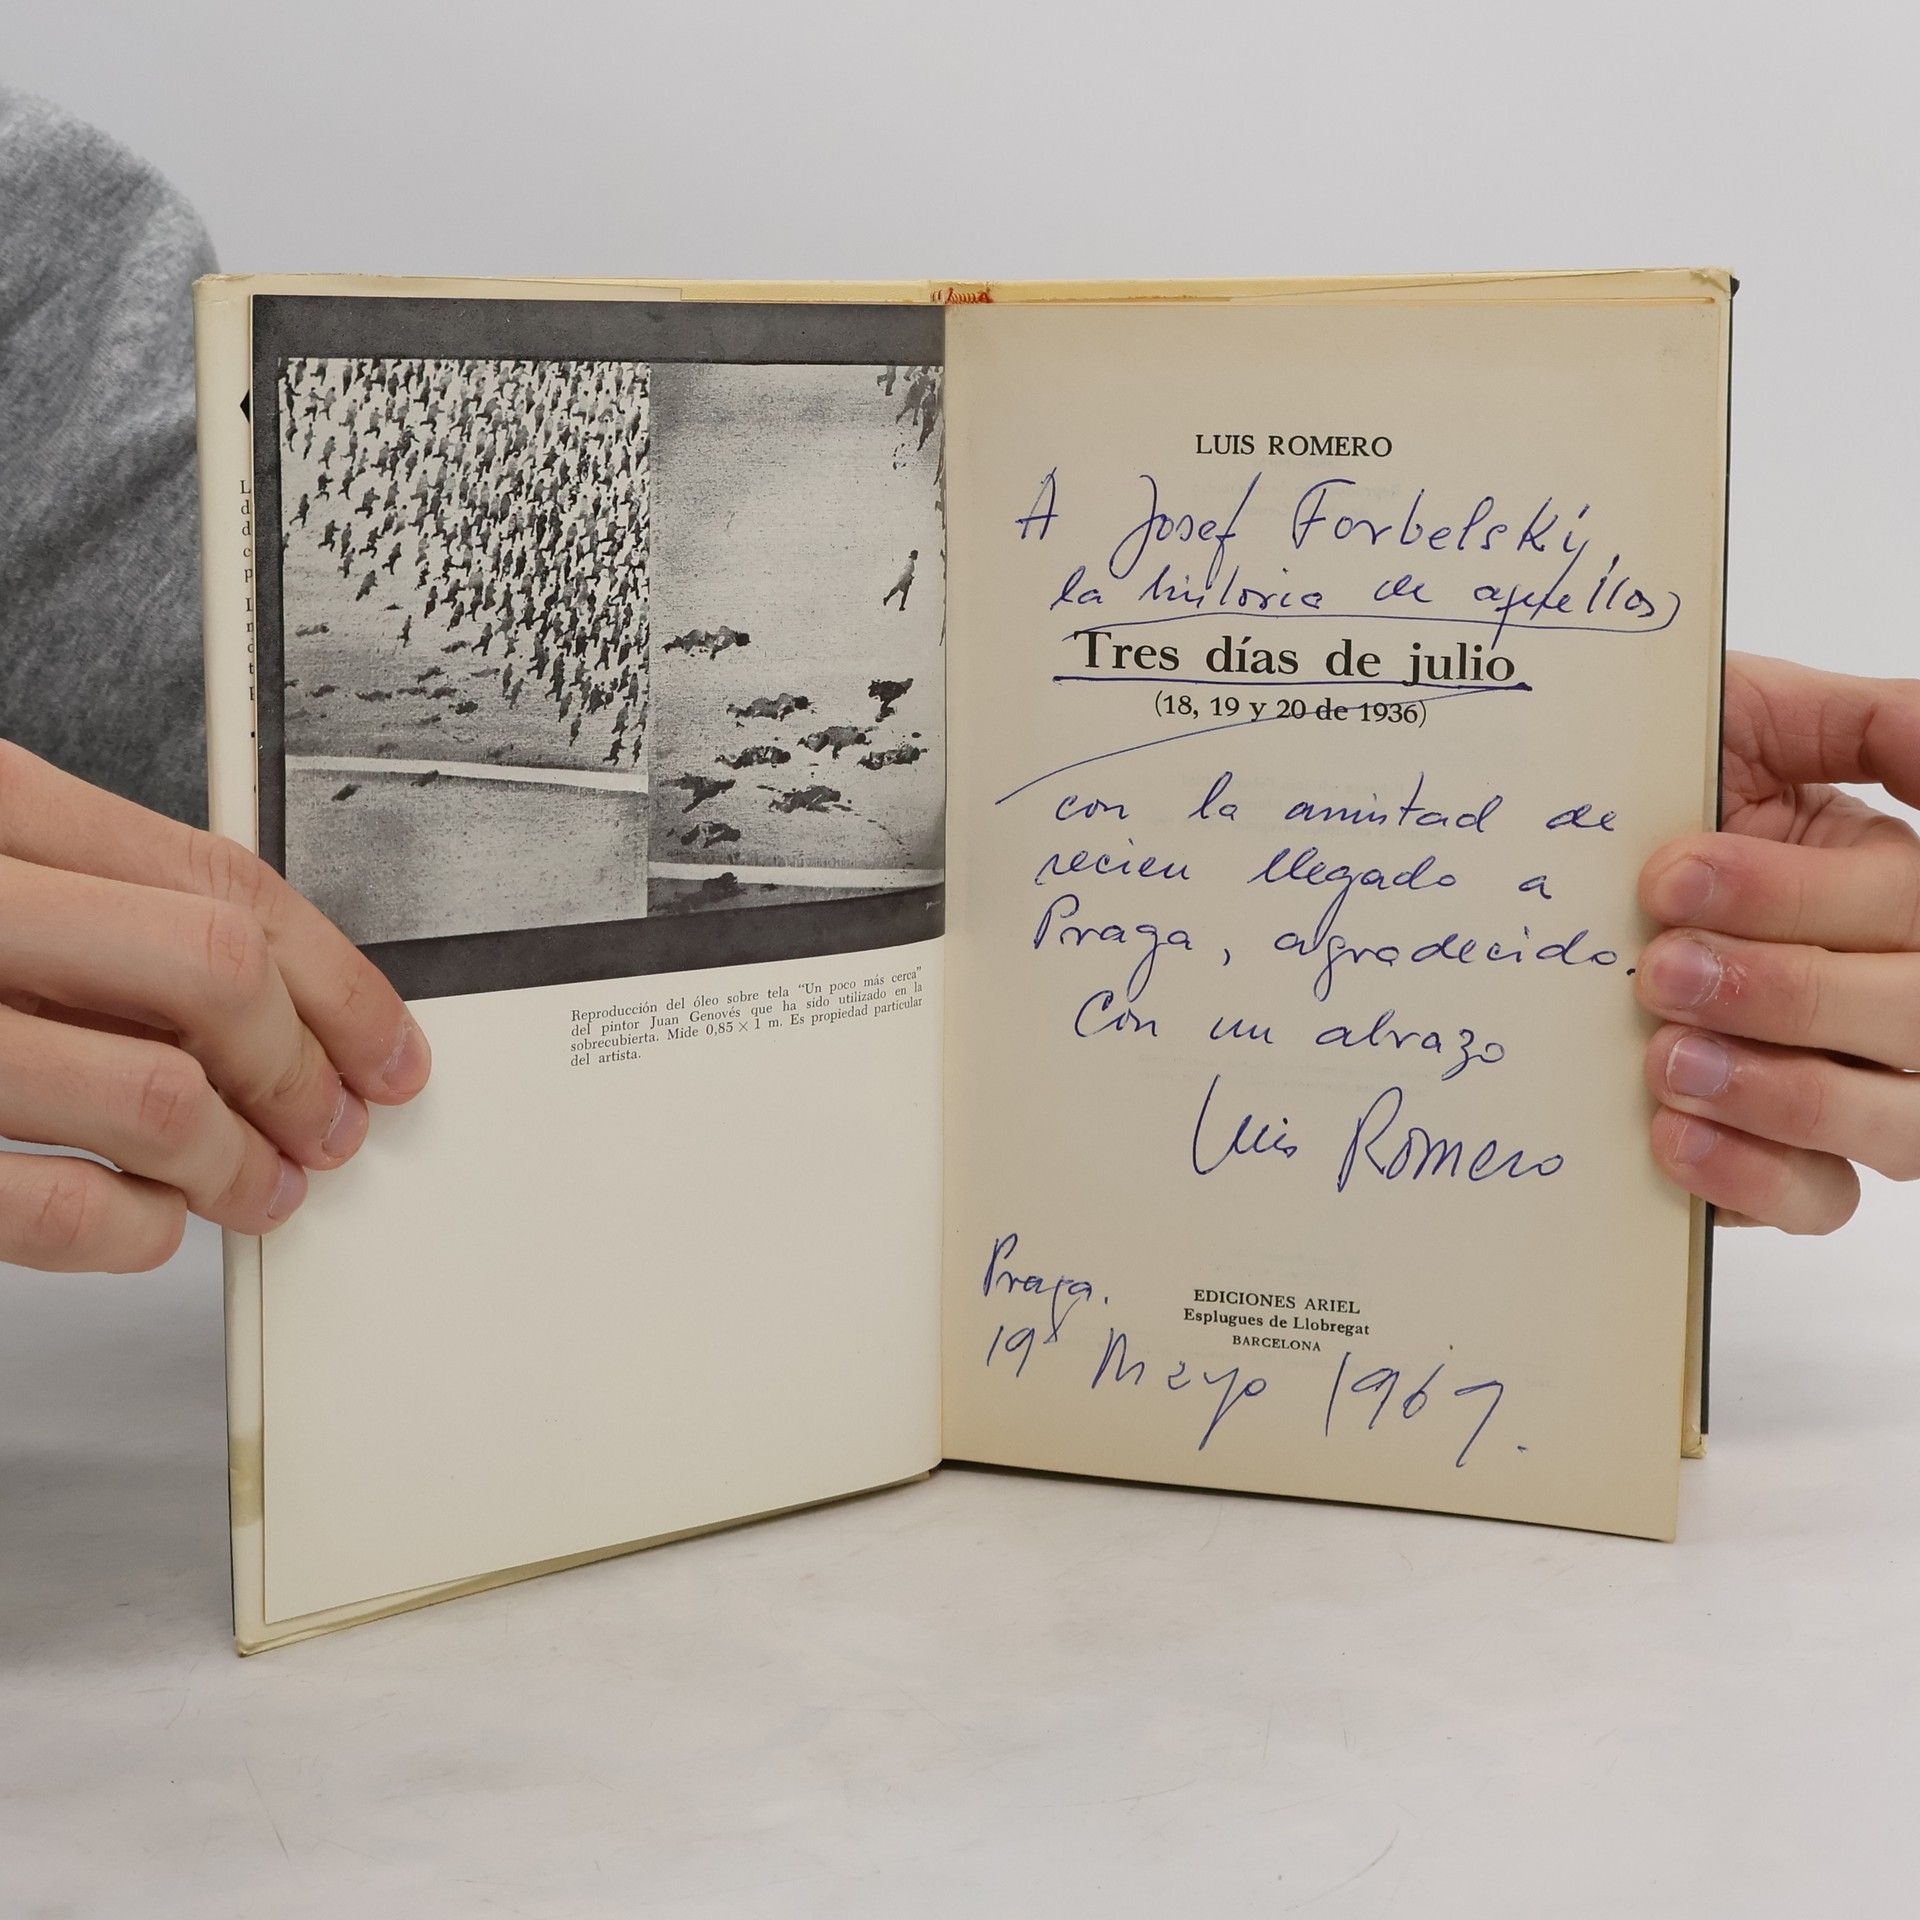 Reproducción del óleo sobre tela "Un poco más cerca"
del pintor Juan Genovés que ha sido utilizado en la
sobrecubierta. Mide 0,85 × 1 m. Es propiedad particular
del artista.
LUIS ROMERO
A Josef Forbelský,
la historia de aquellos
Tres días de julio
(18, 19 y 20 de 1936)
con la amistad de
recien llegado a
Praga, agradecido.
Con un abrazo
Luis Romero
Praga.
EDICIONES ARIEL
Esplugues de Llobregat
BARCELONA
19 Mayo 1967.